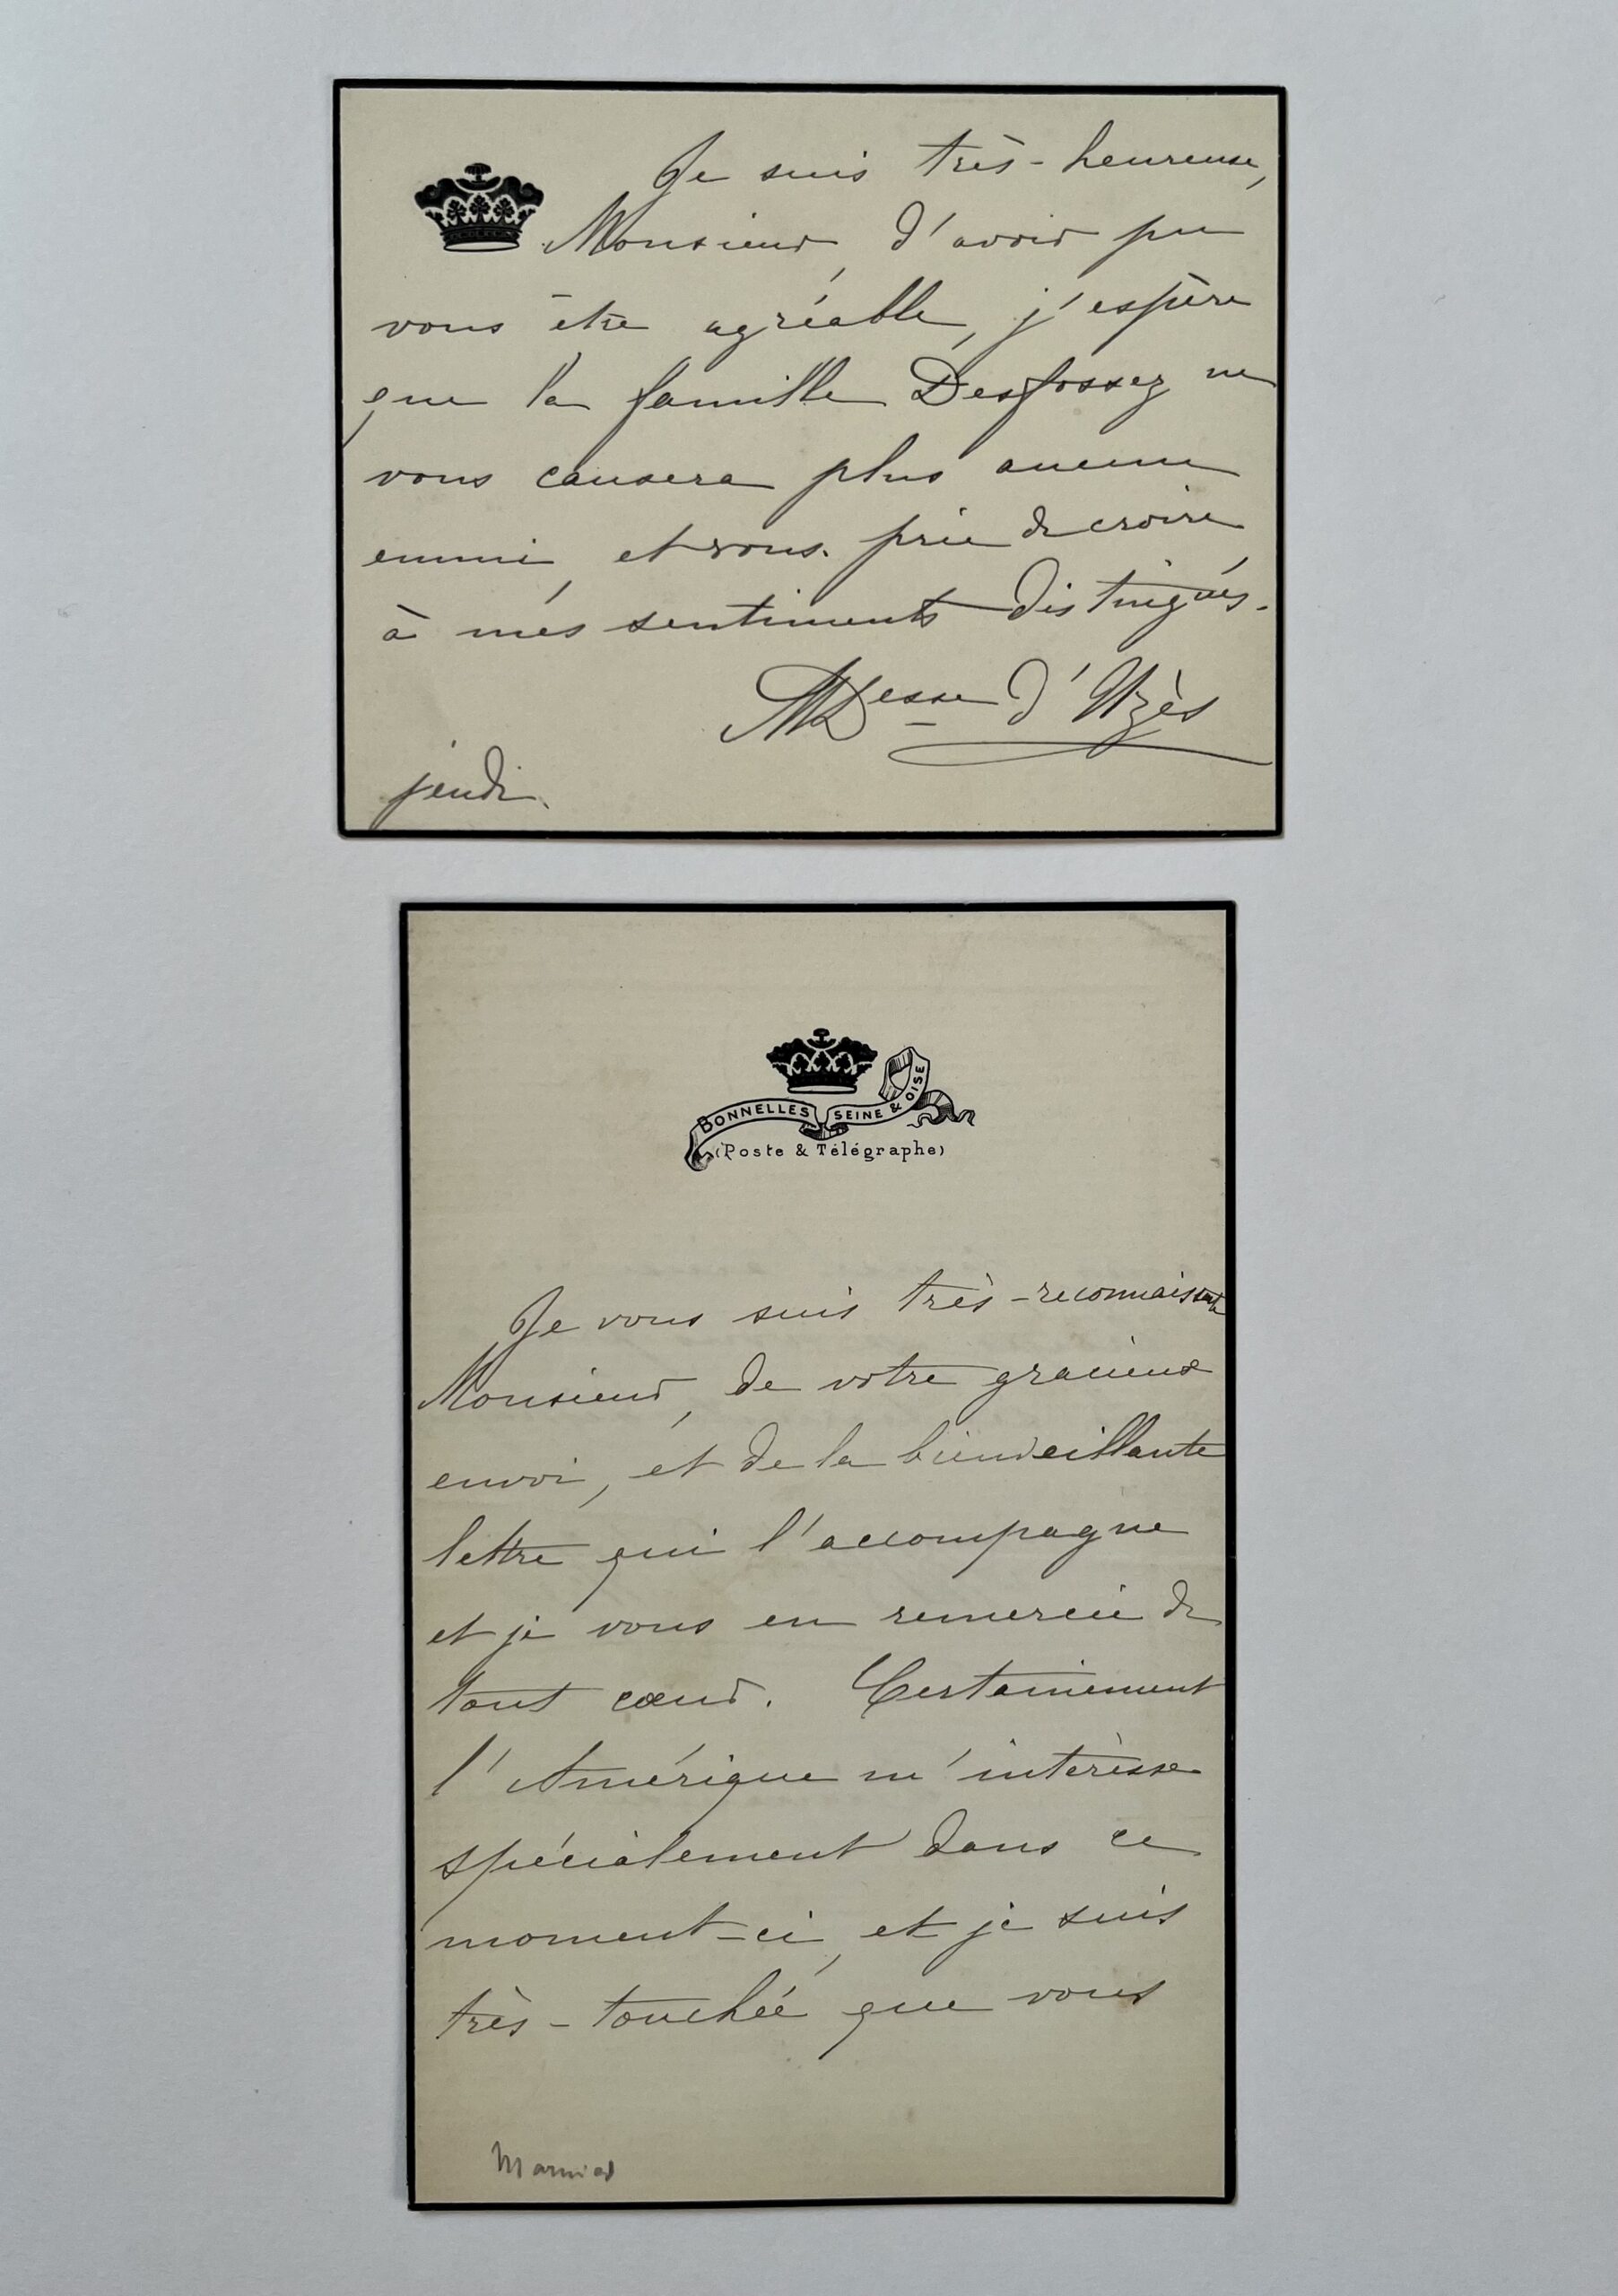 Je suis très-heureuse,
Monsieur, d'avoir pu
vous être agréable, j'espère
que la famille Desfossez ne
vous causera plus aucun
ennui, et vous prie de croire
à mes sentiments distingués.
Desse d'Uzès
jeudi.
BONNELLES SEINE & OISE
(Poste & Télégraphe)
Je vous suis très-reconnaissante
Monsieur, de votre gracieux
envoi, et de la bienveillante
lettre qui l'accompagne
et je vous en remercie de
tout cœur. Certainement
l'Amérique m'intéresse
spécialement dans ce
moment-ci, et je suis
très-touchée que vous